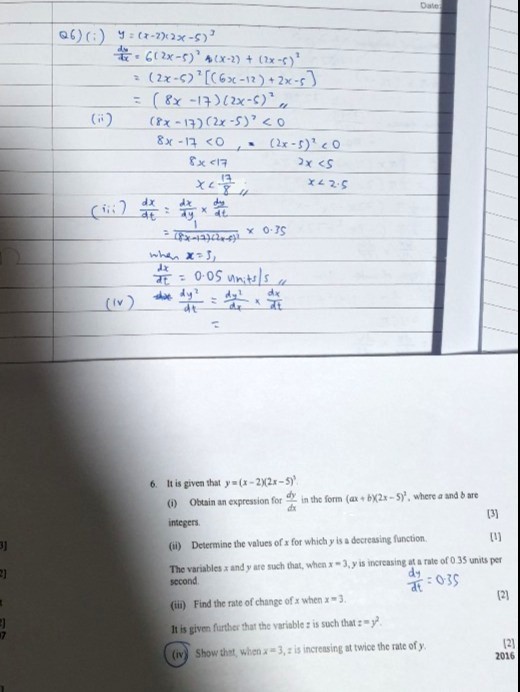 Date:
Q6)(i) y = (x-2)(2x-5)³
dy/dx = 6(2x-5)² (x-2) + (2x-5)³
= (2x-5)² [(6x-12) + 2x-5]
= (8x-17)(2x-5)² //
(ii) (8x-17)(2x-5)² < 0
8x-17 < 0 , (2x-5)² < 0
8x < 17 2x < 5
x < 17/8 // x < 2.5
(iii) dx/dt = dx/dy × dy/dt
= 1/(8x-17)(2x-5)² × 0.35
when x = 3,
dx/dt = 0.05 units/s //
(iv) dy²/dt = dy²/dx × dx/dt
=
6. It is given that y = (x - 2)(2x - 5)³.
(i) Obtain an expression for dy/dx in the form (ax + b)(2x - 5)², where a and b are
integers. [3]
(ii) Determine the values of x for which y is a decreasing function. [1]
The variables x and y are such that, when x = 3, y is increasing at a rate of 0.35 units per
second. dy/dt = 0.35
(iii) Find the rate of change of x when x = 3. [2]
It is given further that the variable z is such that z = y².
(iv) Show that, when x = 3, z is increasing at twice the rate of y. [2]
2016